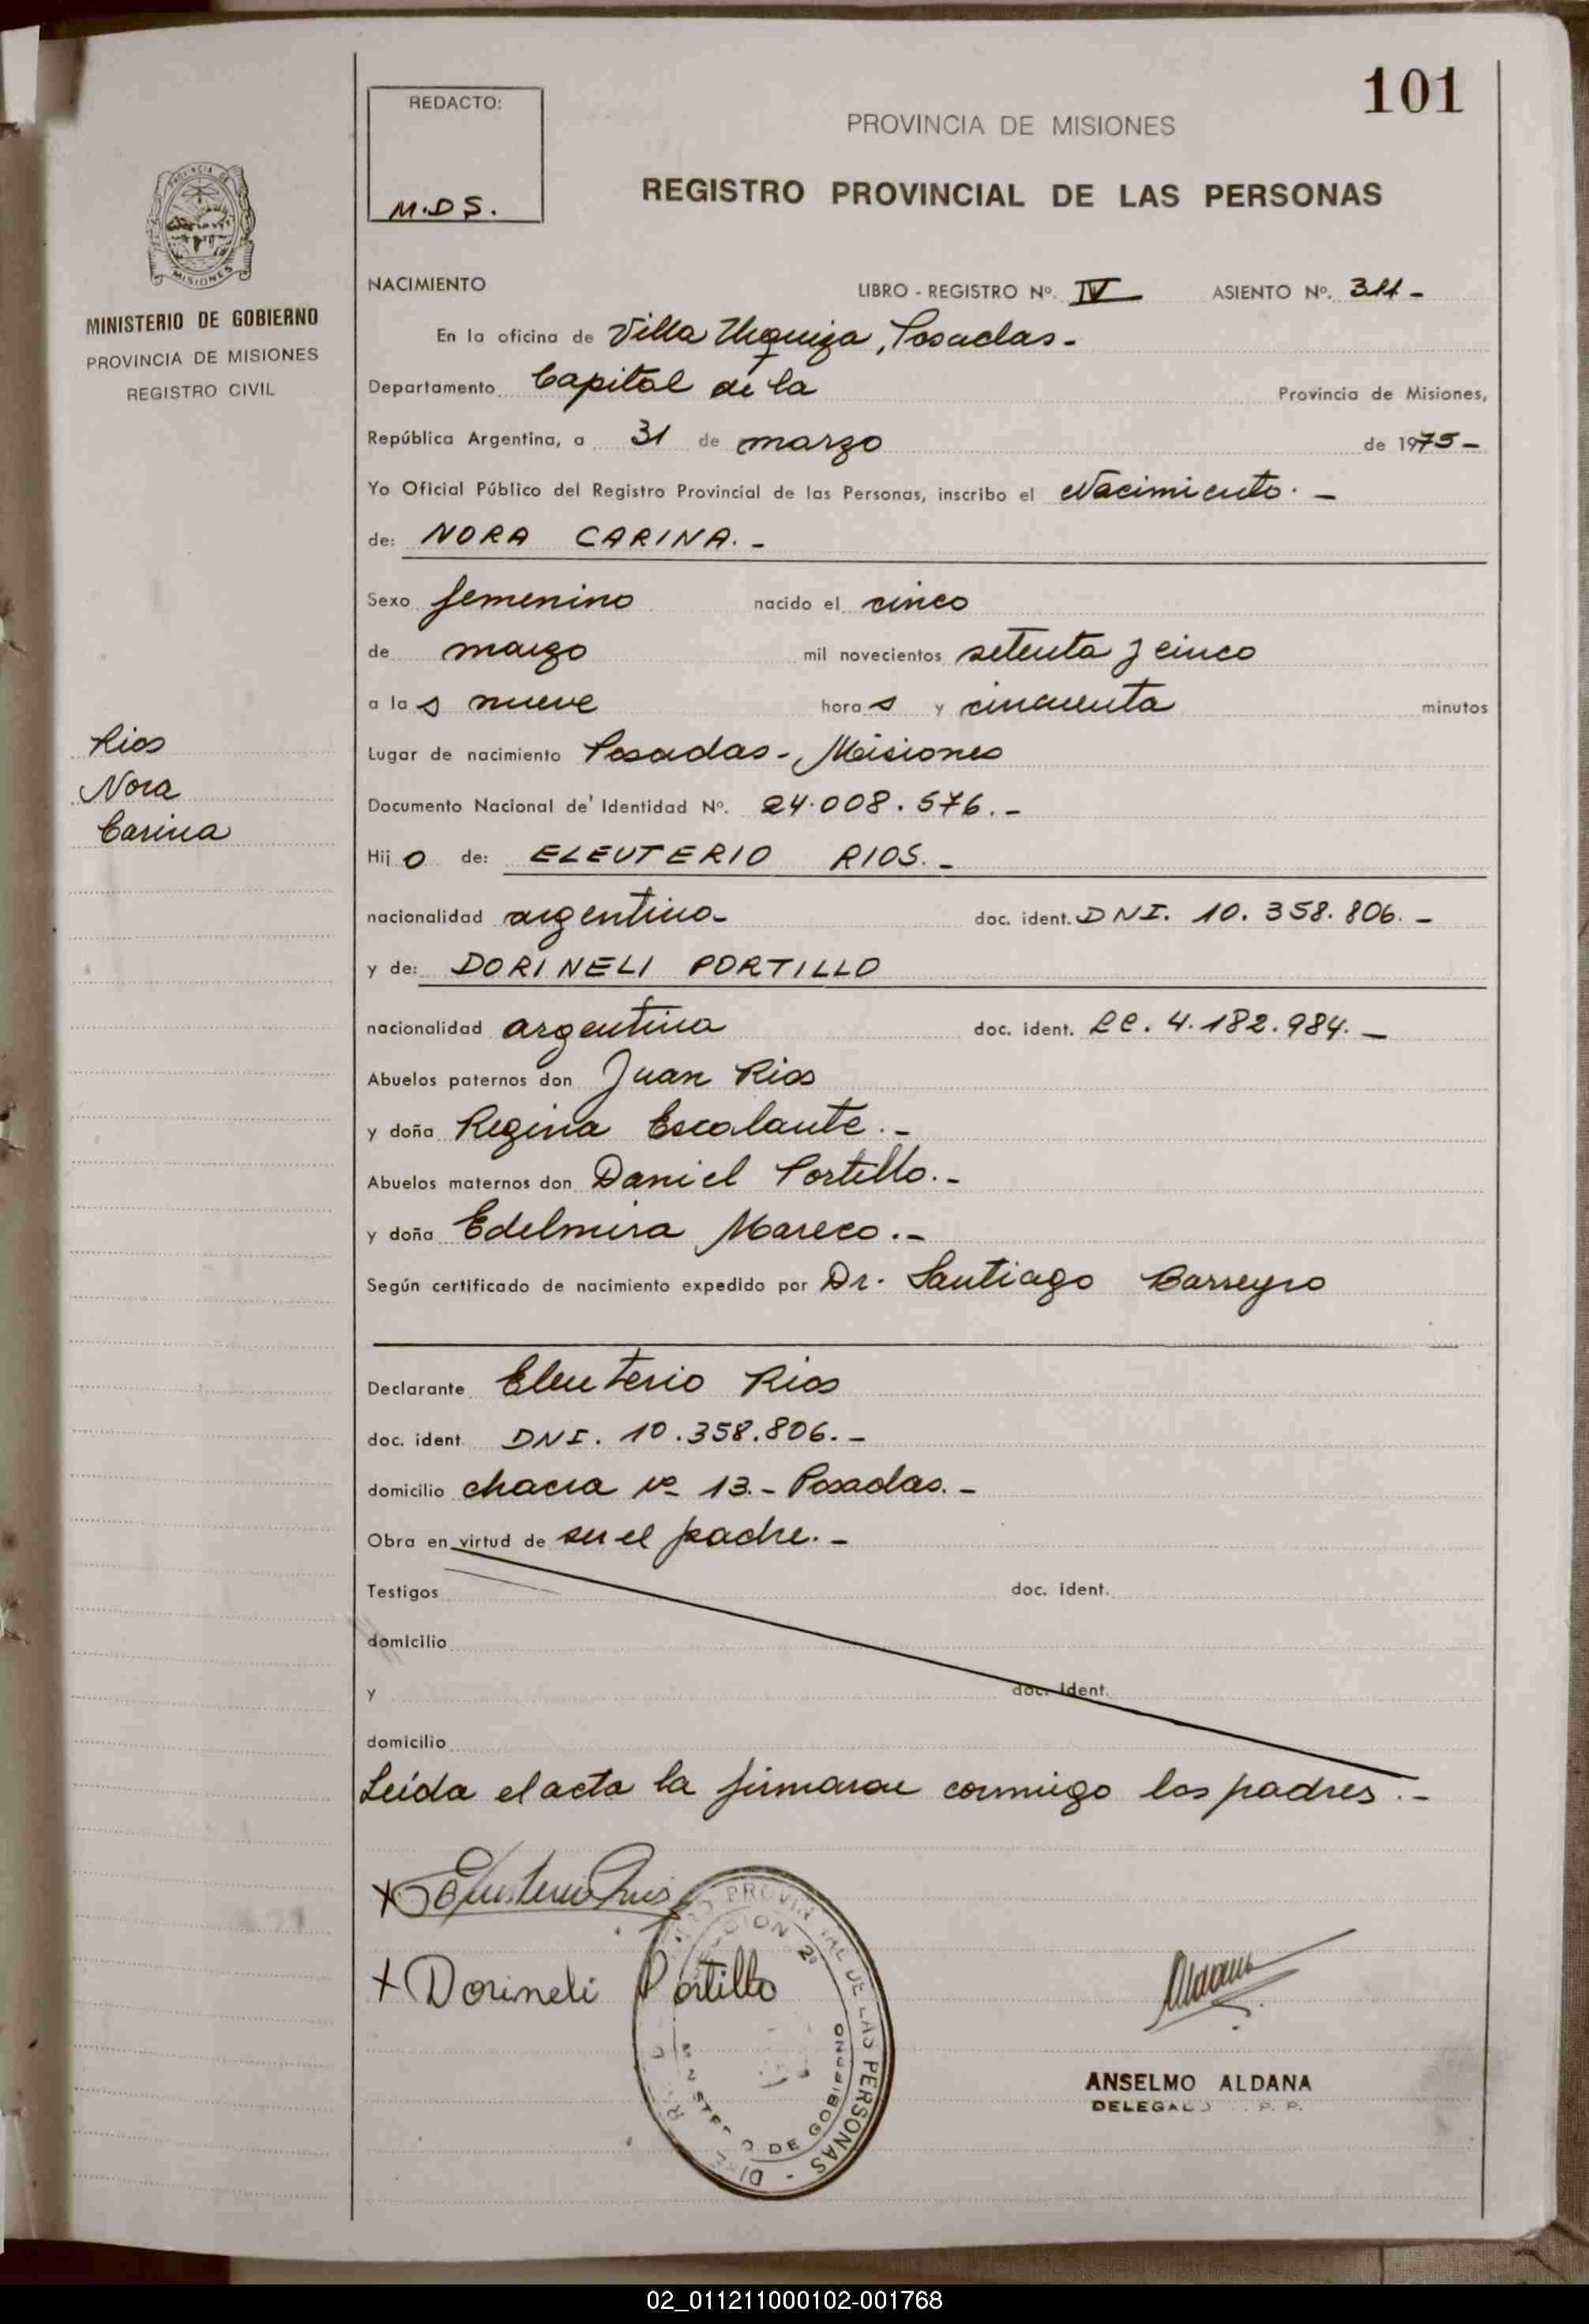 101
REDACTO:
M.D S.
PROVINCIA DE MISIONES
REGISTRO PROVINCIAL DE LAS PERSONAS
MISIONES
MINISTERIO DE GOBIERNO
PROVINCIA DE MISIONES
REGISTRO CIVIL
NACIMIENTO LIBRO - REGISTRO Nº. IV ASIENTO Nº. 311 -
En la oficina de Villa Urquiza, Posadas.-
Departamento Capital de la Provincia de Misiones,
República Argentina, a 31 de marzo de 1975-
Yo Oficial Público del Registro Provincial de las Personas, inscribo el Nacimiento. -
de: NORA CARINA. -
Sexo femenino nacido el cinco
de marzo mil novecientos setenta y cinco
a las nueve horas y cincuenta minutos
Rios
Nora
Carina
Lugar de nacimiento Posadas-, Misiones
Documento Nacional de' Identidad Nº. 24.008.576. -
Hijo de: ELEUTERIO RIOS. -
nacionalidad argentina- doc. ident. DNI. 10. 358. 806. -
y de: DORINELI PORTILLO
nacionalidad argentina doc. ident. LC. 4.182.984. -
Abuelos paternos don Juan Rios
y doña Regina Escalante. -
Abuelos maternos don Daniel Portillo. -
y doña Edelmira Mareco. -
Según certificado de nacimiento expedido por Dr. Santiago Barreyro
Declarante Eleuterio Rios
doc. ident. DNI. 10.358.806. -
domicilio chacra Nº 13.- Posadas. -
Obra en virtud de ser el padre. -
Testigos doc. ident.
domicilio
y doc. ident.
domicilio
Leída el acta la firmaron conmigo los padres. -
+ Dorineli Portillo
PROVINCIAL DE LAS PERSONAS
2ª
DE GOBIERNO
ANSELMO ALDANA
02_011211000102-001768